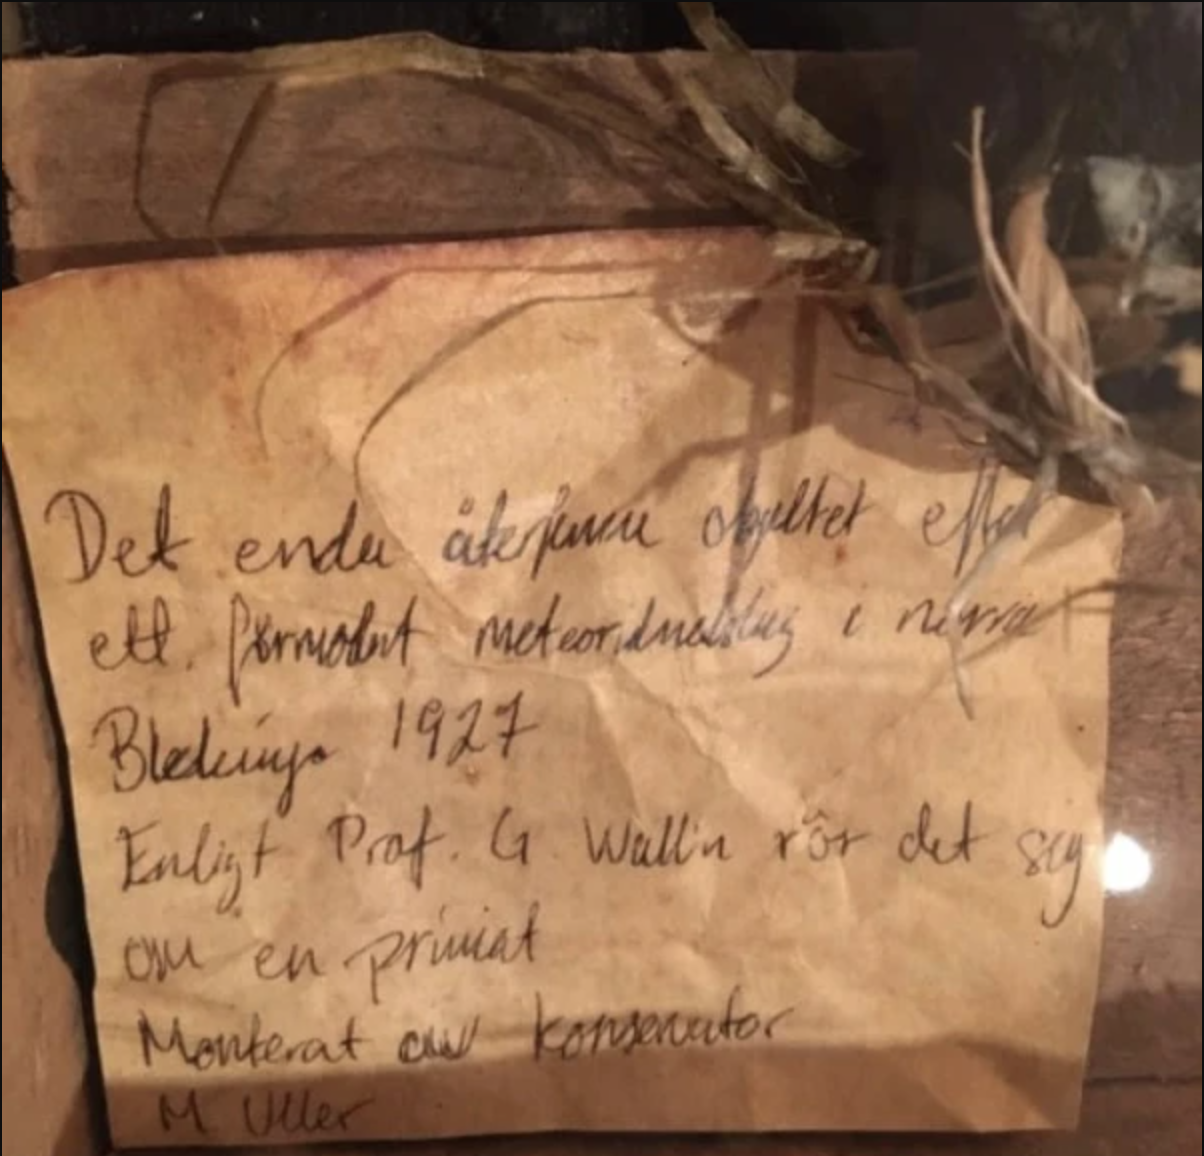 Det enda återfunna objektet efter
ett förmodat meteoridnedslag i norra
Blekinge 1927
Enligt Prof. G Wallin rör det sig
om en primat
Monterat av konservator
M Uller